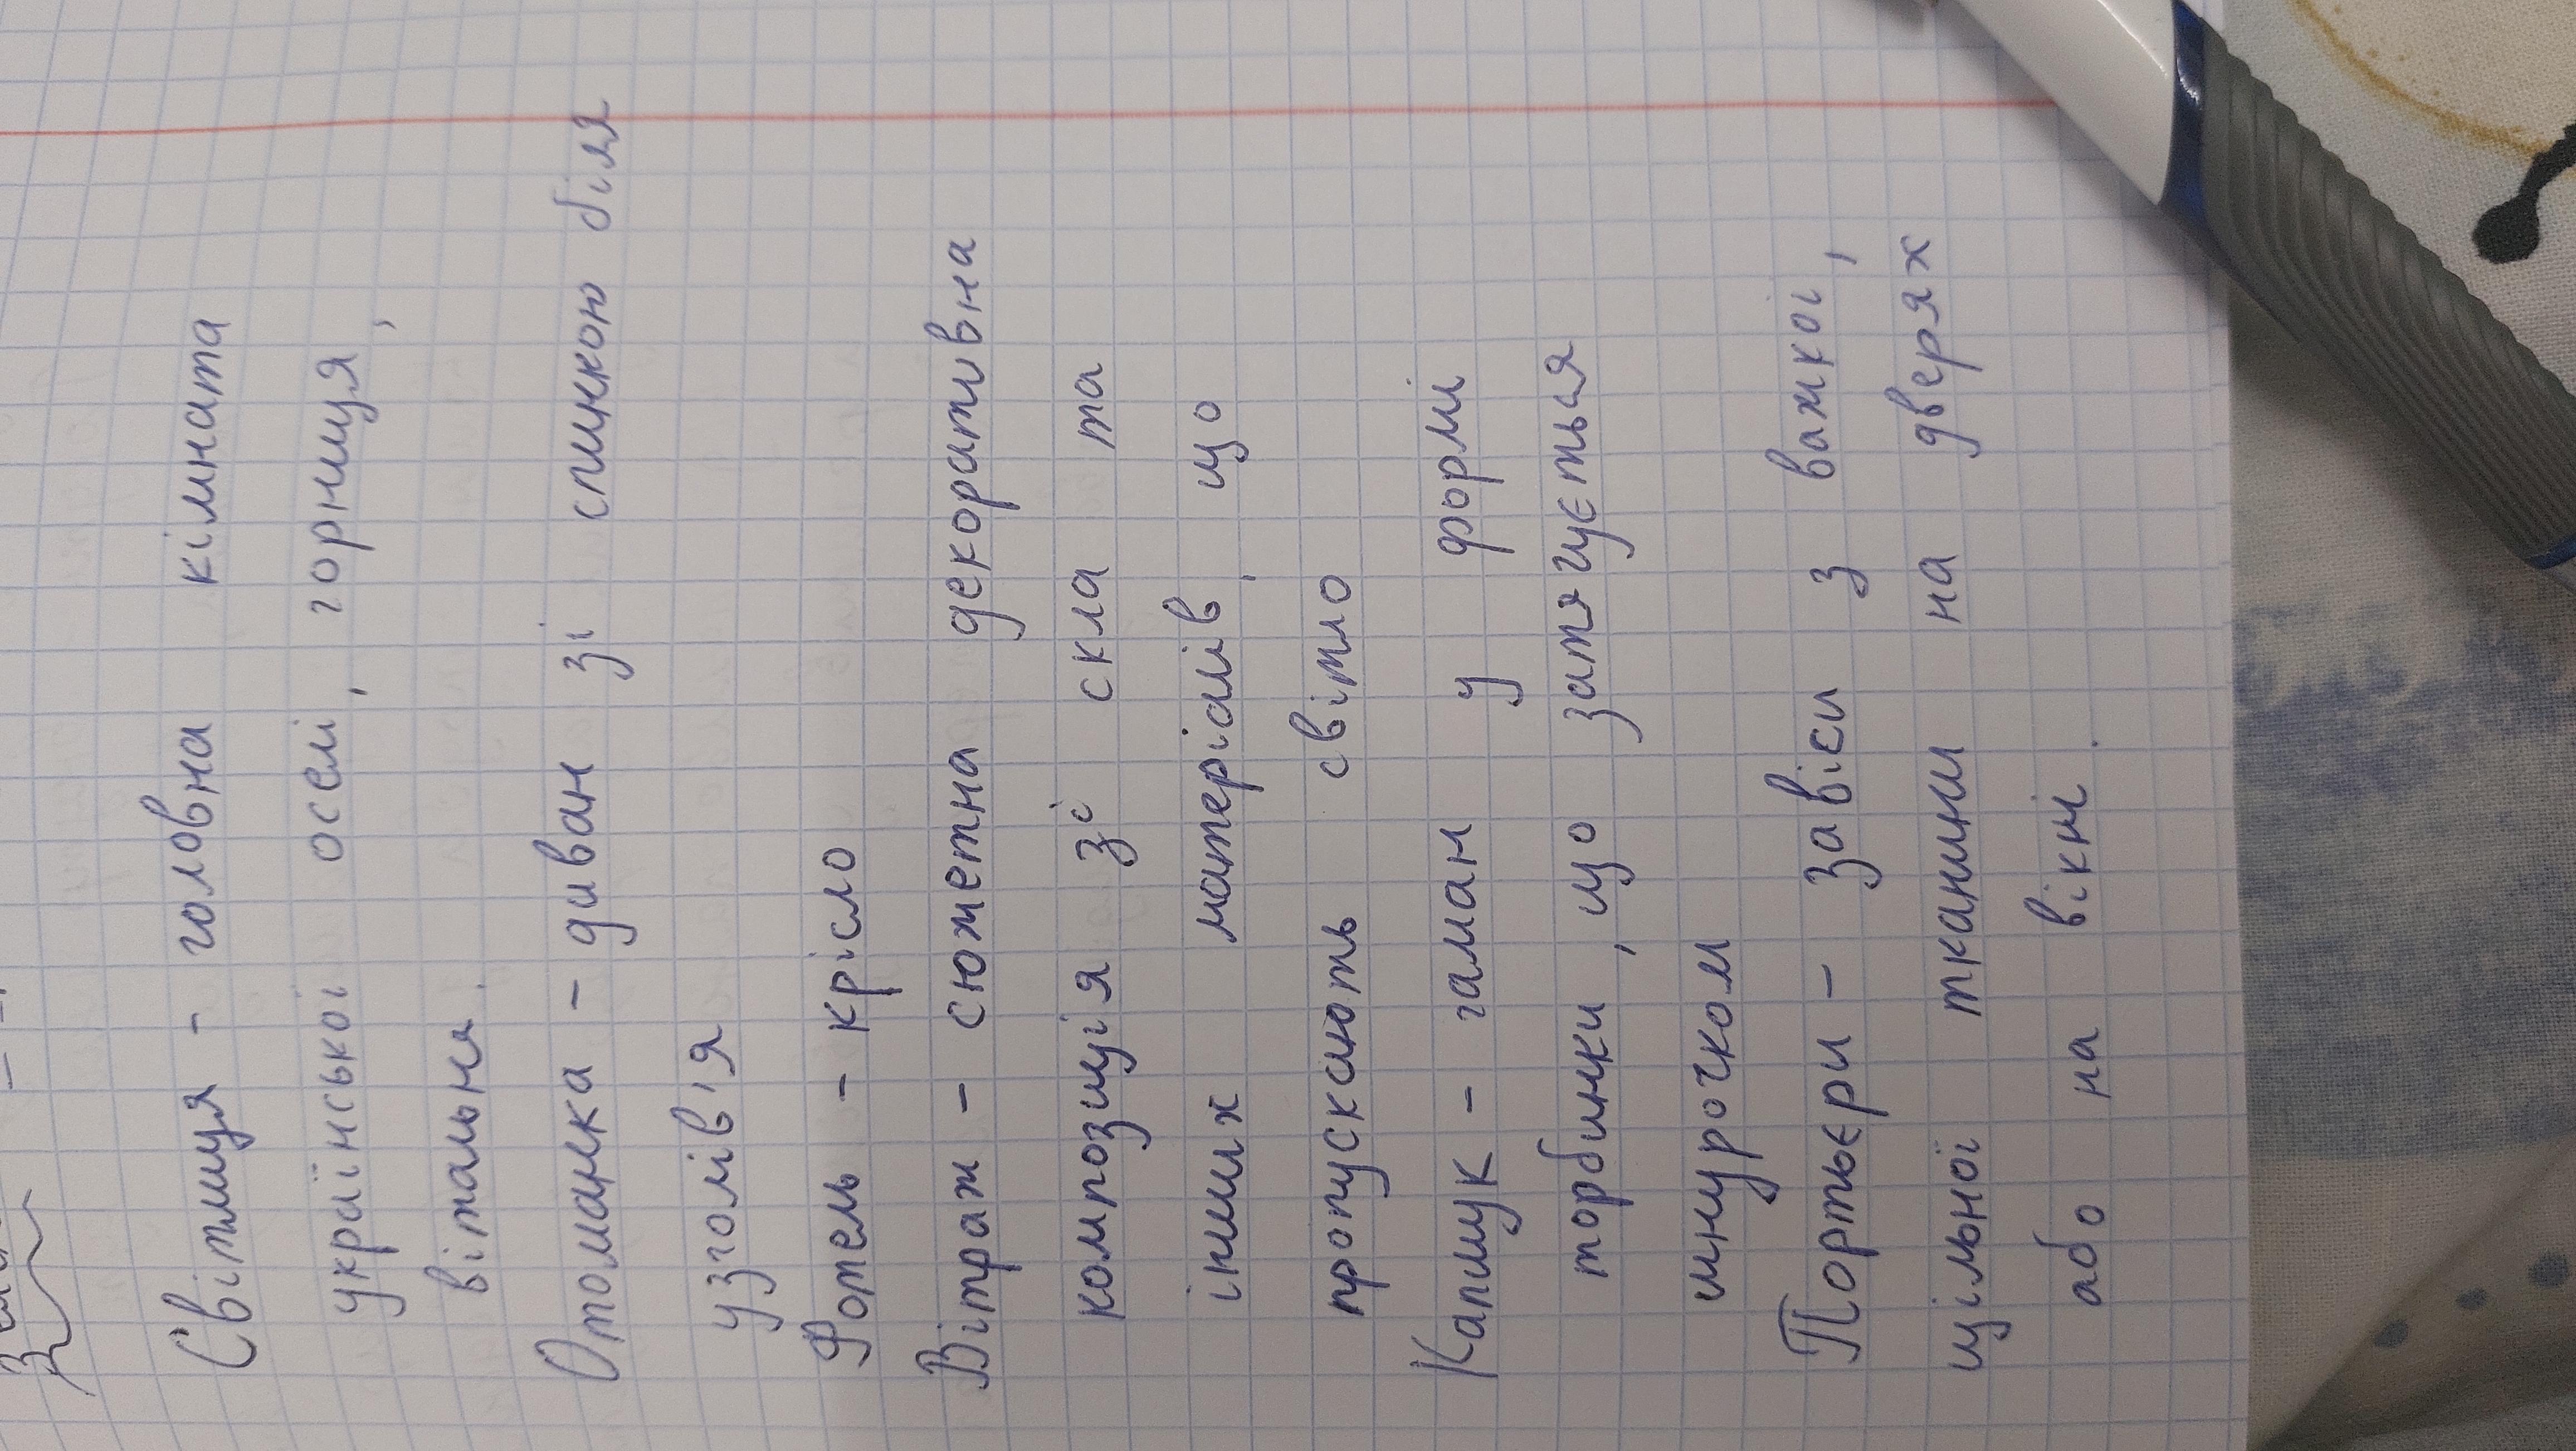 Світлиця - головна кімната
української оселі, горниця,
вітальня.
Отоманка - диван зі спинкою біля
узголів'я
Фотель - крісло
Вітраж - сюжетна декоративна
композиція зі скла та
інших матеріалів, що
пропускають світло
Капшук - гаман у формі
торбинки, що затягується
шнурочком
Портьєри - завіси з важкої,
щільної тканини на дверях
або на вікні.